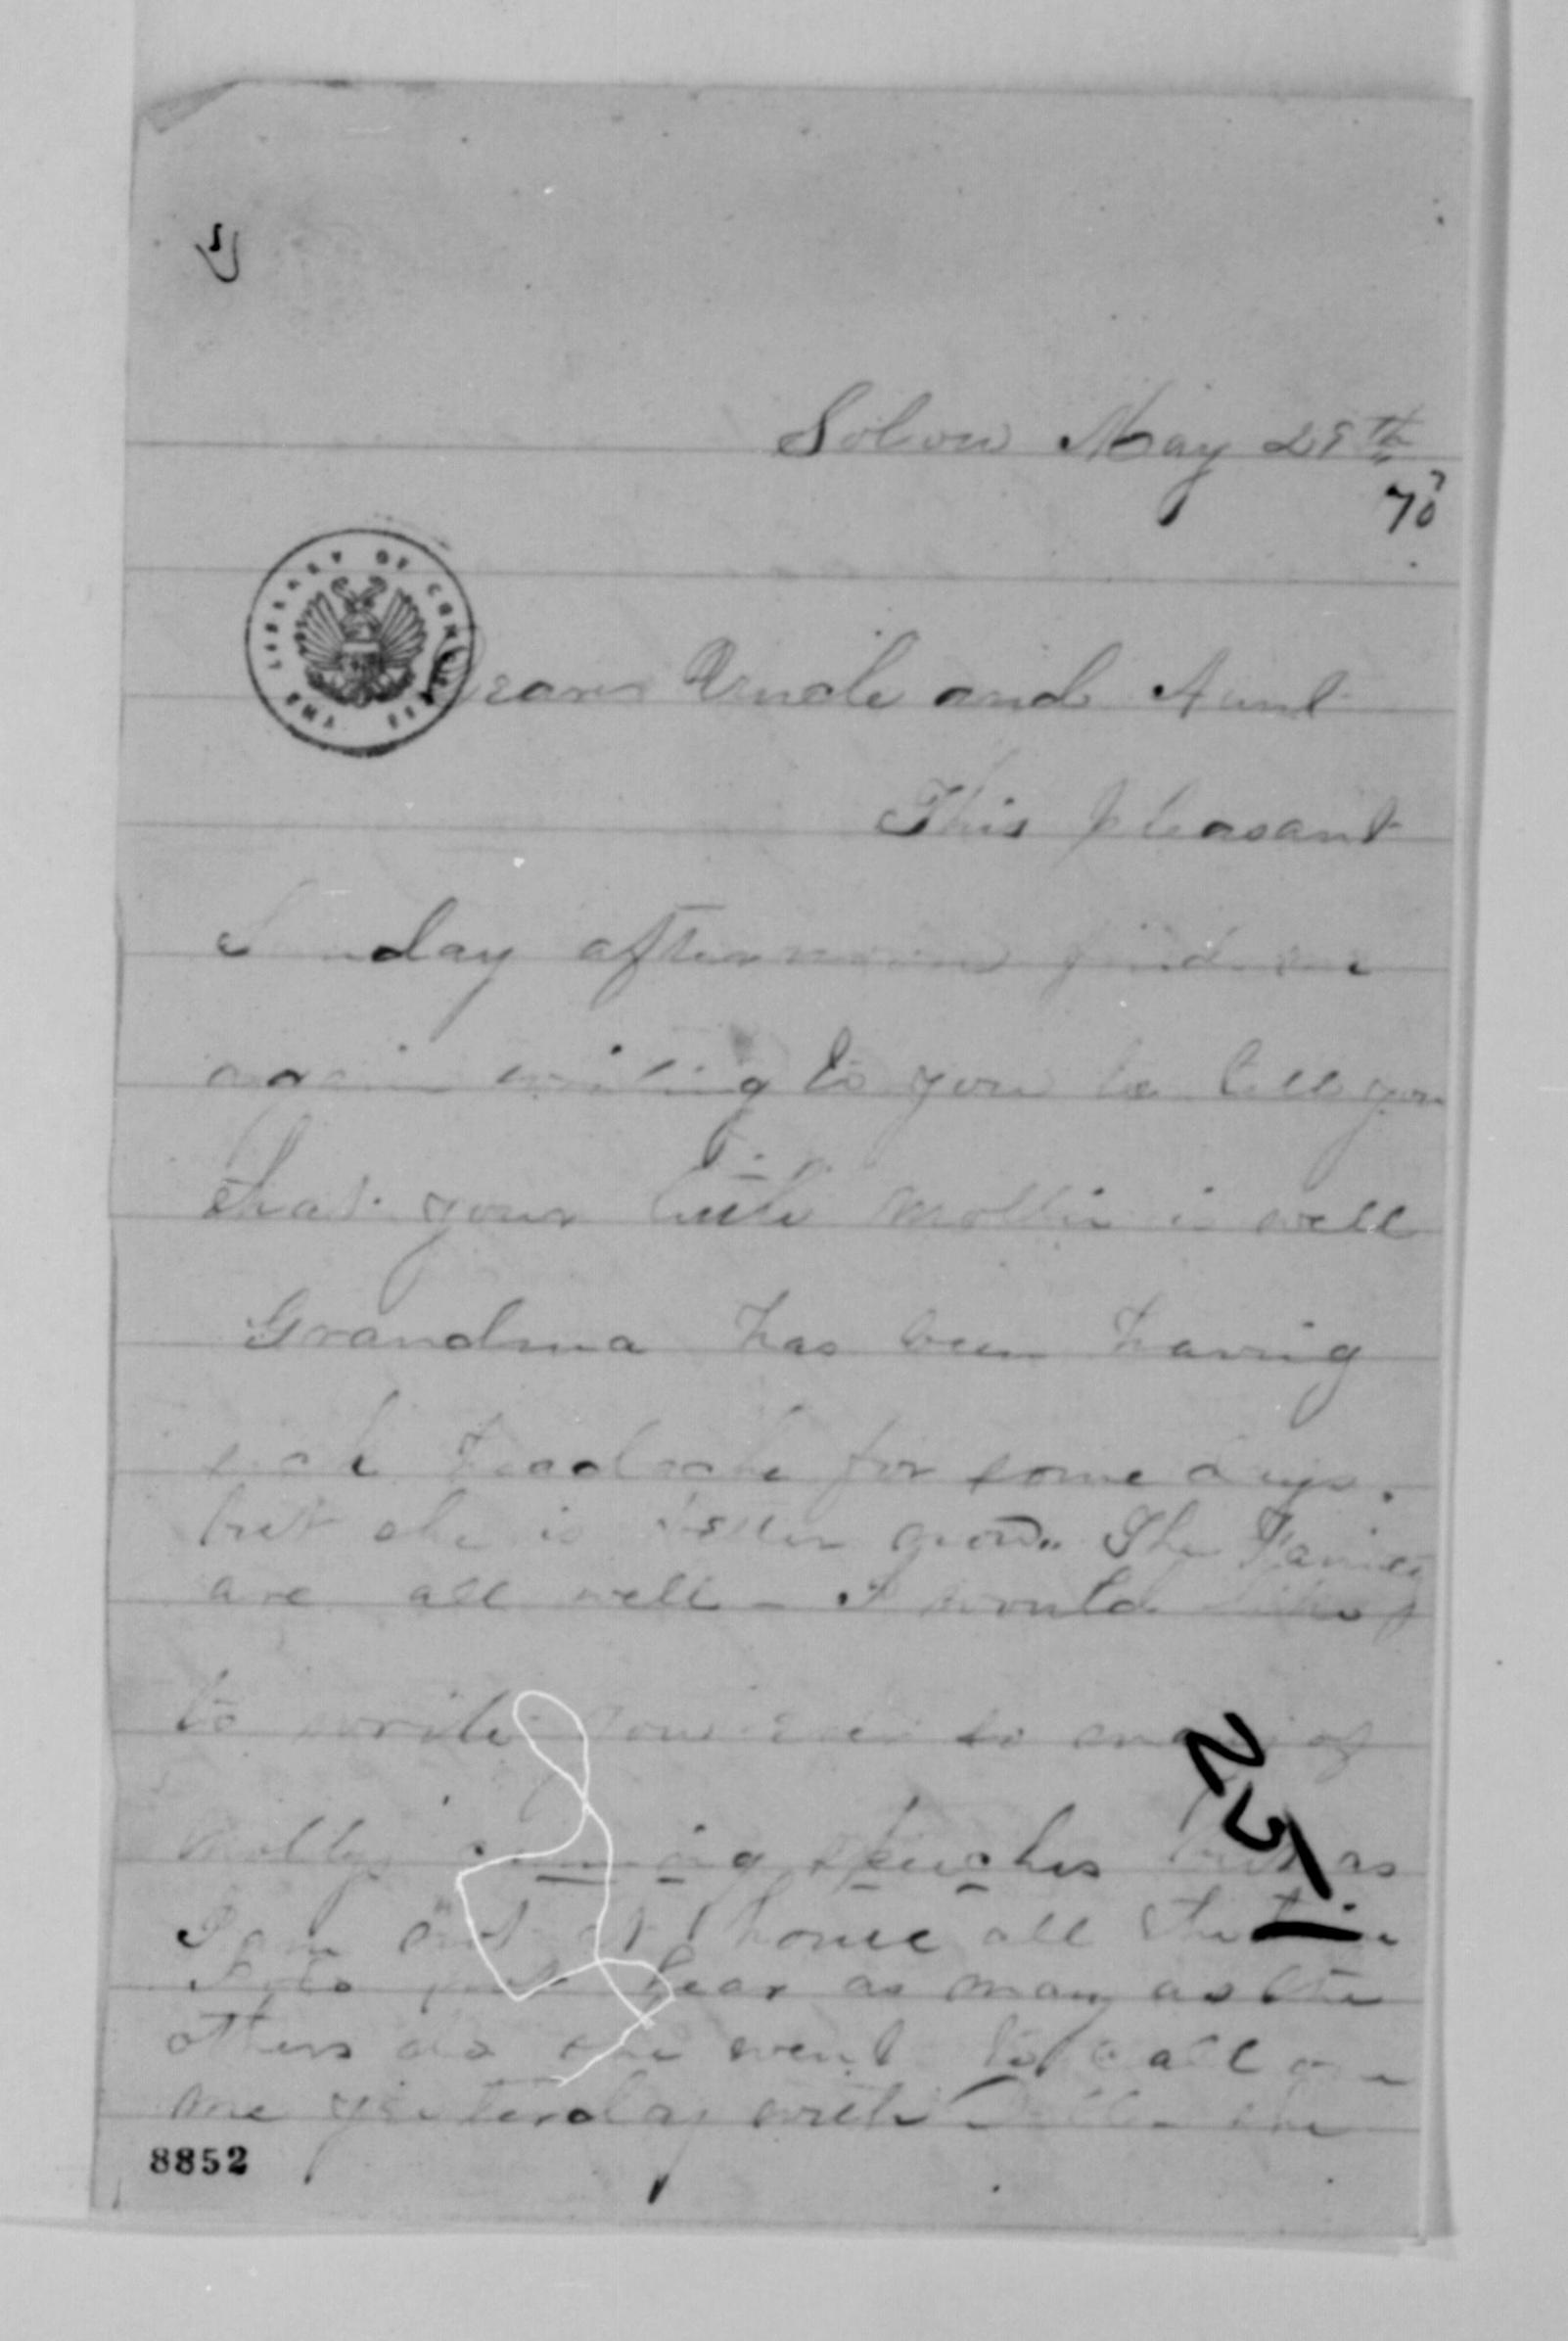 Solon May 29th
70
THE LIBRARY OF CONGRESS
Dear Uncle and Aunt
This pleasant
Sunday afternoon finds me
again writing to you to tell you
that your little Mollie is well
Grandma has been having
sick headache for some days.
but she is better now. The Family
are all well - I would like
to write you
Mollys cunning speeches but as
I am not at home all the time
I do not hear as many as the
others do she went to call on
me yesterday with she
8852